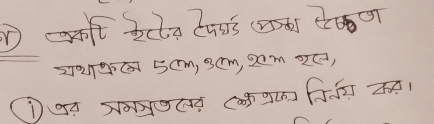 একটি ইটের দৈর্ঘ্য প্রস্থ
যথাক্রমে 5cm, 3cm, 2cm হলে,
i এর সমগ্রতলের ক্ষেত্রফল নির্নয় কর।